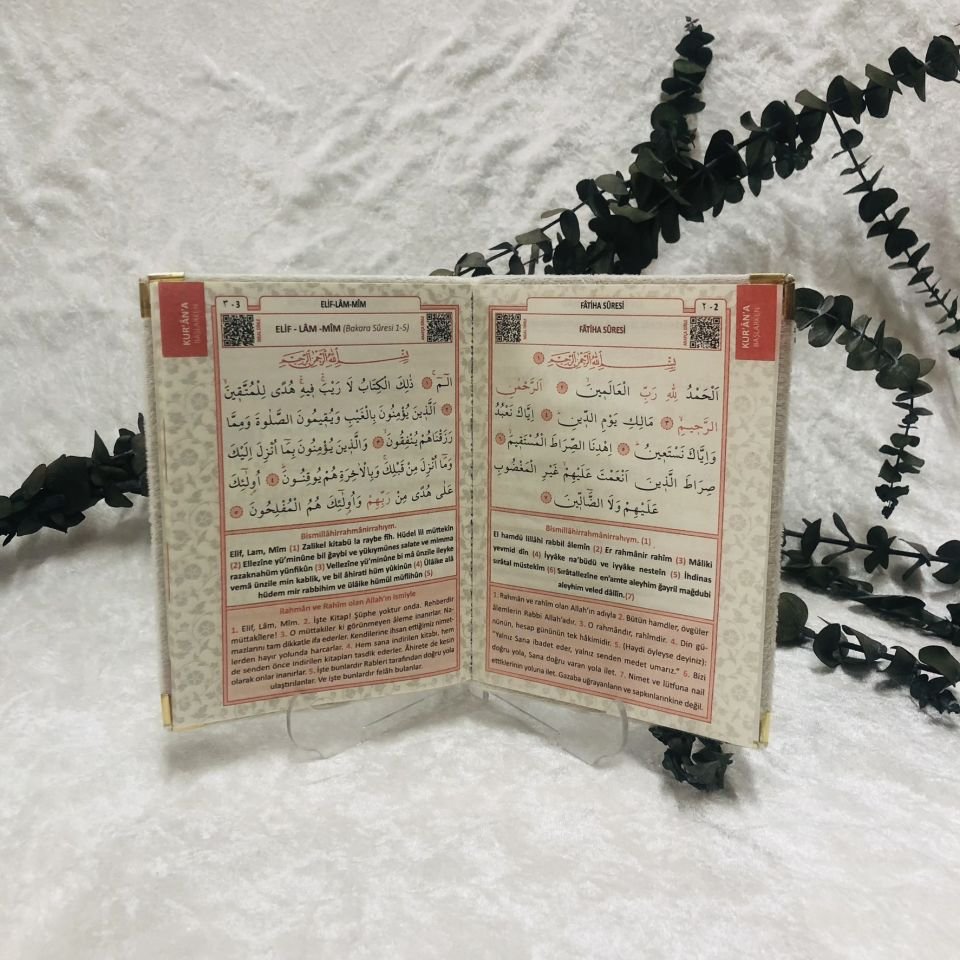 KUR'ÂN'A
BAŞLARKEN
FÂTİHA SÛRESİ
٢ - 2
FÂTİHA SÛRESİ
بِسْمِ اللّٰهِ الرَّحْمٰنِ الرَّحِيمِ ١
اَلْحَمْدُ لِلّٰهِ رَبِّ الْعَالَمِينَ ٢ اَلرَّحْمٰنِ
الرَّحِيمِ ٣ مَالِكِ يَوْمِ الدِّينِ ٤ اِيَّاكَ نَعْبُدُ
وَاِيَّاكَ نَسْتَعِينُ ٥ اِهْدِنَا الصِّرَاطَ الْمُسْتَقِيمَ ٦
صِرَاطَ الَّذِينَ اَنْعَمْتَ عَلَيْهِمْ غَيْرِ الْمَغْضُوبِ
عَلَيْهِمْ وَلَا الضَّٓالِّينَ ٧
Bismillâhirrahmânirrahıym. (1)
El hamdü lillâhi rabbil âlemîn (2) Er rahmânir rahîm (3) Mâliki
yevmid dîn (4) İyyâke na'büdü ve iyyâke nesteîn (5) İhdinas
sırâtal müstekîm (6) Sırâtallezîne en'amte aleyhim ğayril mağdubi
aleyhim veled dâllîn.(7)
1. Rahmân ve rahîm olan Allah'ın adıyla 2. Bütün hamdler, övgüler
âlemlerin Rabbi Allah'adır. 3. O rahmândır, rahîmdir. 4. Din gü-
nünün, hesap gününün tek hâkimidir. 5. (Haydi öyleyse deyiniz):
"Yalnız Sana ibadet eder, yalnız senden medet umarız." 6. Bizi
doğru yola, Sana doğru varan yola ilet. 7. Nimet ve lütfuna nail
ettiklerinin yoluna ilet. Gazaba uğrayanların ve sapkınlarınkine değil.
KUR'ÂN'A
BAŞLARKEN
٣ - 3
ELİF-LÂM-MÎM
ELİF - LÂM -MÎM (Bakara Sûresi 1-5)
بِسْمِ اللّٰهِ الرَّحْمٰنِ الرَّحِيمِ
الٓمٓ ١ ذٰلِكَ الْكِتَابُ لَا رَيْبَ فِيهِ هُدًى لِلْمُتَّقِينَ
٢ اَلَّذِينَ يُؤْمِنُونَ بِالْغَيْبِ وَيُقِيمُونَ الصَّلٰوةَ وَمِمَّا
رَزَقْنَاهُمْ يُنْفِقُونَ ٣ وَالَّذِينَ يُؤْمِنُونَ بِمَٓا اُنْزِلَ اِلَيْكَ
وَمَٓا اُنْزِلَ مِنْ قَبْلِكَ وَبِالْاٰخِرَةِ هُمْ يُوقِنُونَ ٤ اُولٰٓئِكَ
عَلٰى هُدًى مِنْ رَبِّهِمْ وَاُولٰٓئِكَ هُمُ الْمُفْلِحُونَ ٥
Bismillâhirrahmânirrahıym.
Elif, Lam, Mîm (1) Zalikel kitabü la raybe fîh. Hüdel lil müttekîn
(2) Ellezîne yü'minûne bil ğaybi ve yükıymünes salate ve mimma
razaknahüm yünfikûn (3) Vellezîne yü'minûne bi mâ ünzile ileyke
vemâ ünzile min kablik, ve bil âhirati hüm yükinûn (4) Ülâike alâ
hüdem mir rabbihim ve ülâike hümül müflihûn (5)
Rahmân ve Rahîm olan Allah'ın ismiyle
1. Elif, Lâm, Mîm. 2. İşte Kitap! Şüphe yoktur onda. Rehberdir
müttakilere! 3. O müttakiler ki görünmeyen âleme inanırlar. Na-
mazlarını tam dikkatle ifa ederler. Kendilerine ihsan ettiğimiz nimet-
lerden hayır yolunda harcarlar. 4. Hem sana indirilen kitabı, hem
de senden önce indirilen kitapları tasdik ederler. Âhirete de kesin
olarak onlar inanırlar. 5. İşte bunlardır Rableri tarafından doğru yola
ulaştırılanlar. Ve işte bunlardır felâh bulanlar.